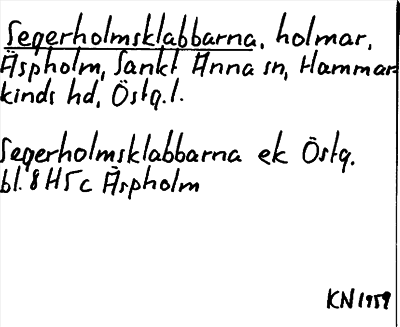 Segerholmsklabbarna, holmar,
Äspholm, Sankt Anna sn, Hammar-
kinds hd, Östg.l.
Segerholmsklabbarna ek Östg.
bl. 8 H 5 c Äspholm
KN 1959